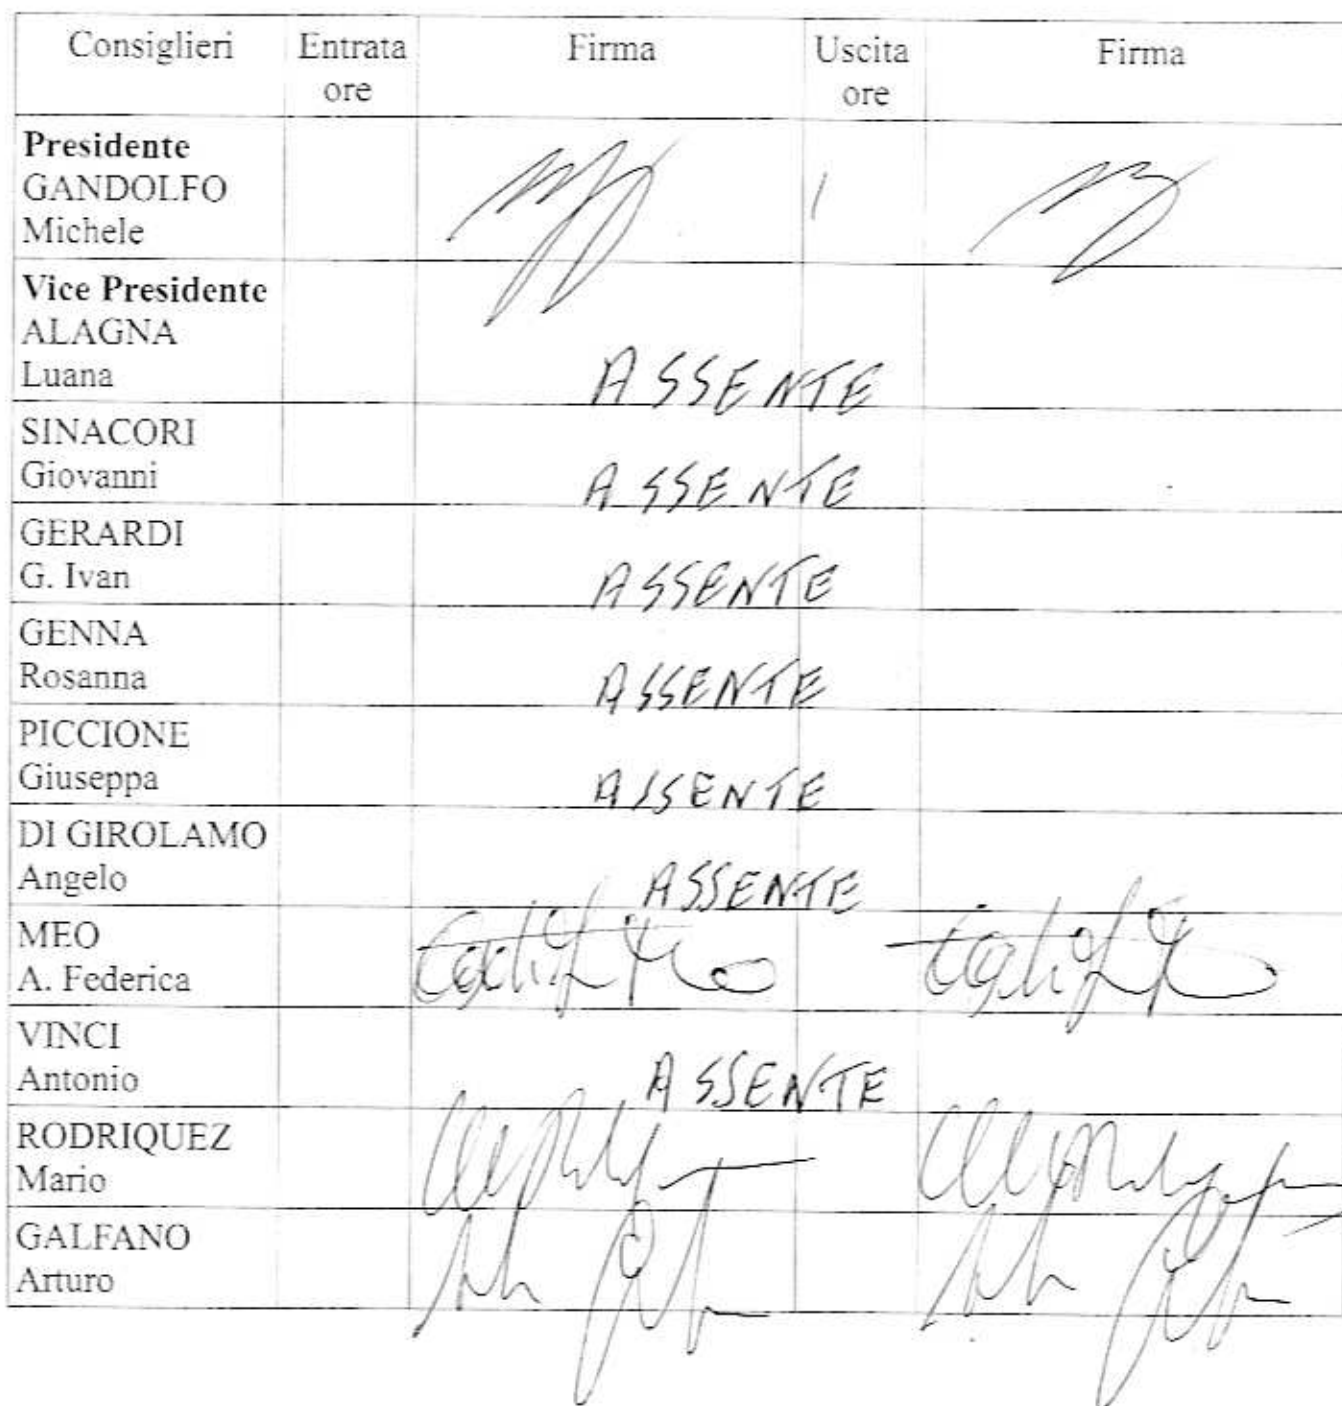 Consiglieri Entrata ore Firma Uscita ore Firma
Presidente
GANDOLFO
Michele
Vice Presidente
ALAGNA
Luana ASSENTE
SINACORI
Giovanni ASSENTE
GERARDI
G. Ivan ASSENTE
GENNA
Rosanna ASSENTE
PICCIONE
Giuseppa ASSENTE
DI GIROLAMO
Angelo ASSENTE
MEO
A. Federica
VINCI
Antonio ASSENTE
RODRIQUEZ
Mario
GALFANO
Arturo